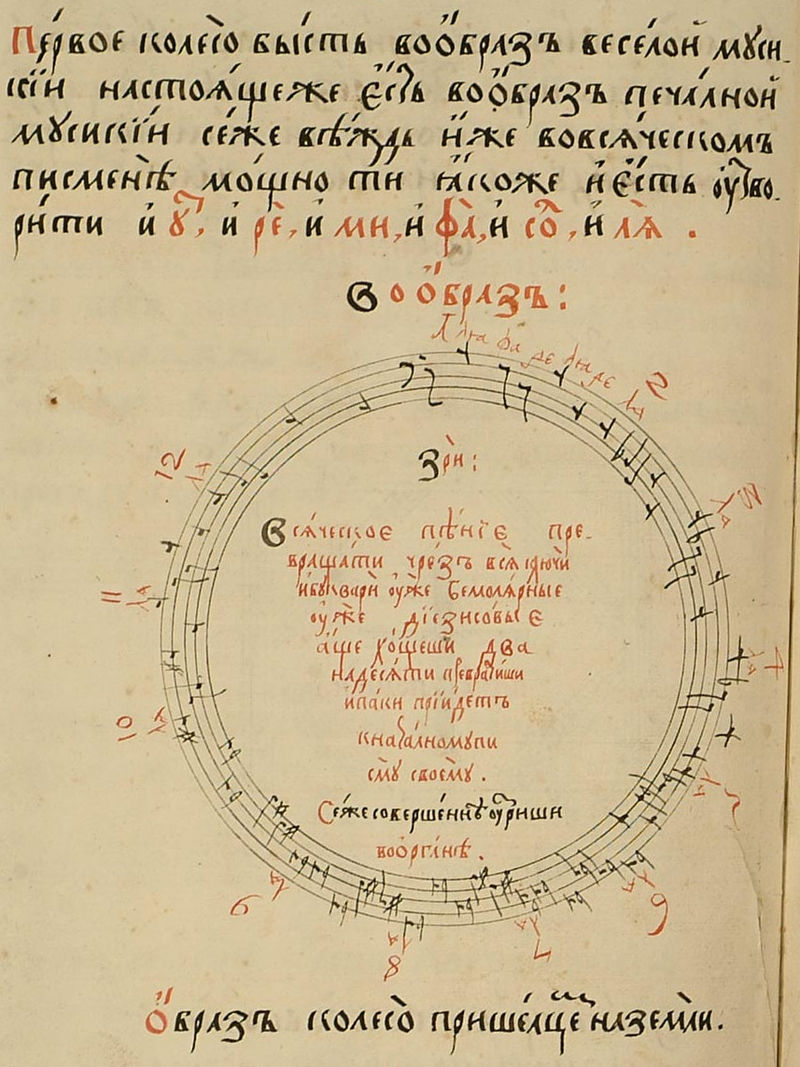 Первое колесо̀ бы́сть воо́бразъ весе́лой муси-
кі́и настоѧ́щеѧже є҆́сть воо́бразъ печа́лной
мусикі́и се́же всѣ́ждь и́же вовсѧ́ческомъ
писменѣ̀ мо́щно ти ꙗ҆́коже и҆ є҆́сть ᲂу҆тво-
ри́ти и҆ у҆̀, и҆ рѐ, и҆ ми, и҆ фа̀, и҆ со̀, и҆ лѧ̀.
Воо́бразъ:
Зрѝ:
Всѧ́ческое пѣ́ніе пре-
враща́ти чрез̾ всѧ̀ ключѝ
и҆букварѝ ᲂу҆́же бемолѧ́рные
ᲂу҆́же діезисовы́е
а҆́ще хо́щеши два
на́десѧти преврати́ши
и҆па́ки прїи́детъ
кнача́лномупи
сму̀ своемꙋ̀.
Се́же соверше́ннѣ ᲂу҆́зриши
воорга́нѣ.
12
11
10
9
8
7
6
О҆́бразъ колесо̀ прише́дшее наземлѝ.